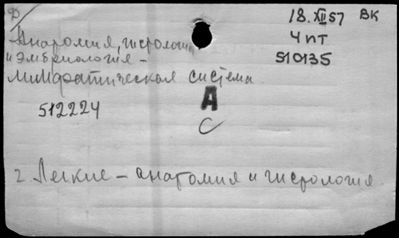 Ф
18.XII 57 ВК
4 пт
510135
Анатомия, гистология
и эмбриология –
лимфатическая система
512224
А
С
2 Легкие – анатомия и гистология